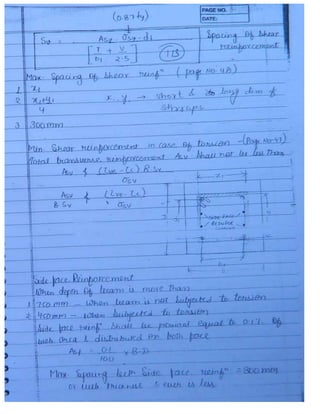 PAGE NO.
DATE:
(0.87fy)
Sv = Asv σsv. d1
[T/b1 + V/2.5]
Spacing of Shear reinforcement
Max. Spacing of Shear reinfⁿ (page No 48)
1 x1
2 x1+y1 / 4 x, y → short & long dim of stirrups
3 300mm
Min Shear reinforcement in case of torsion -(Page No-47)
Total transverse reinforcement Asv shall not be less than
Asv ≮ (τve - τc) B.Sv / σsv
Asv / B.Sv ≮ τve - τc / σsv
Side face Reinforcement
When depth of beam is more than
1 750 mm - When beam is not subjected to torsion
2 450mm - When subjected to torsion
Side face reinfⁿ shall be provided equal to 0.1% of
web area & distributed on both face
Asf = 0.1/100 × B.D
Max Spacing betⁿ Side face reinfⁿ = 300mm
or web thickness